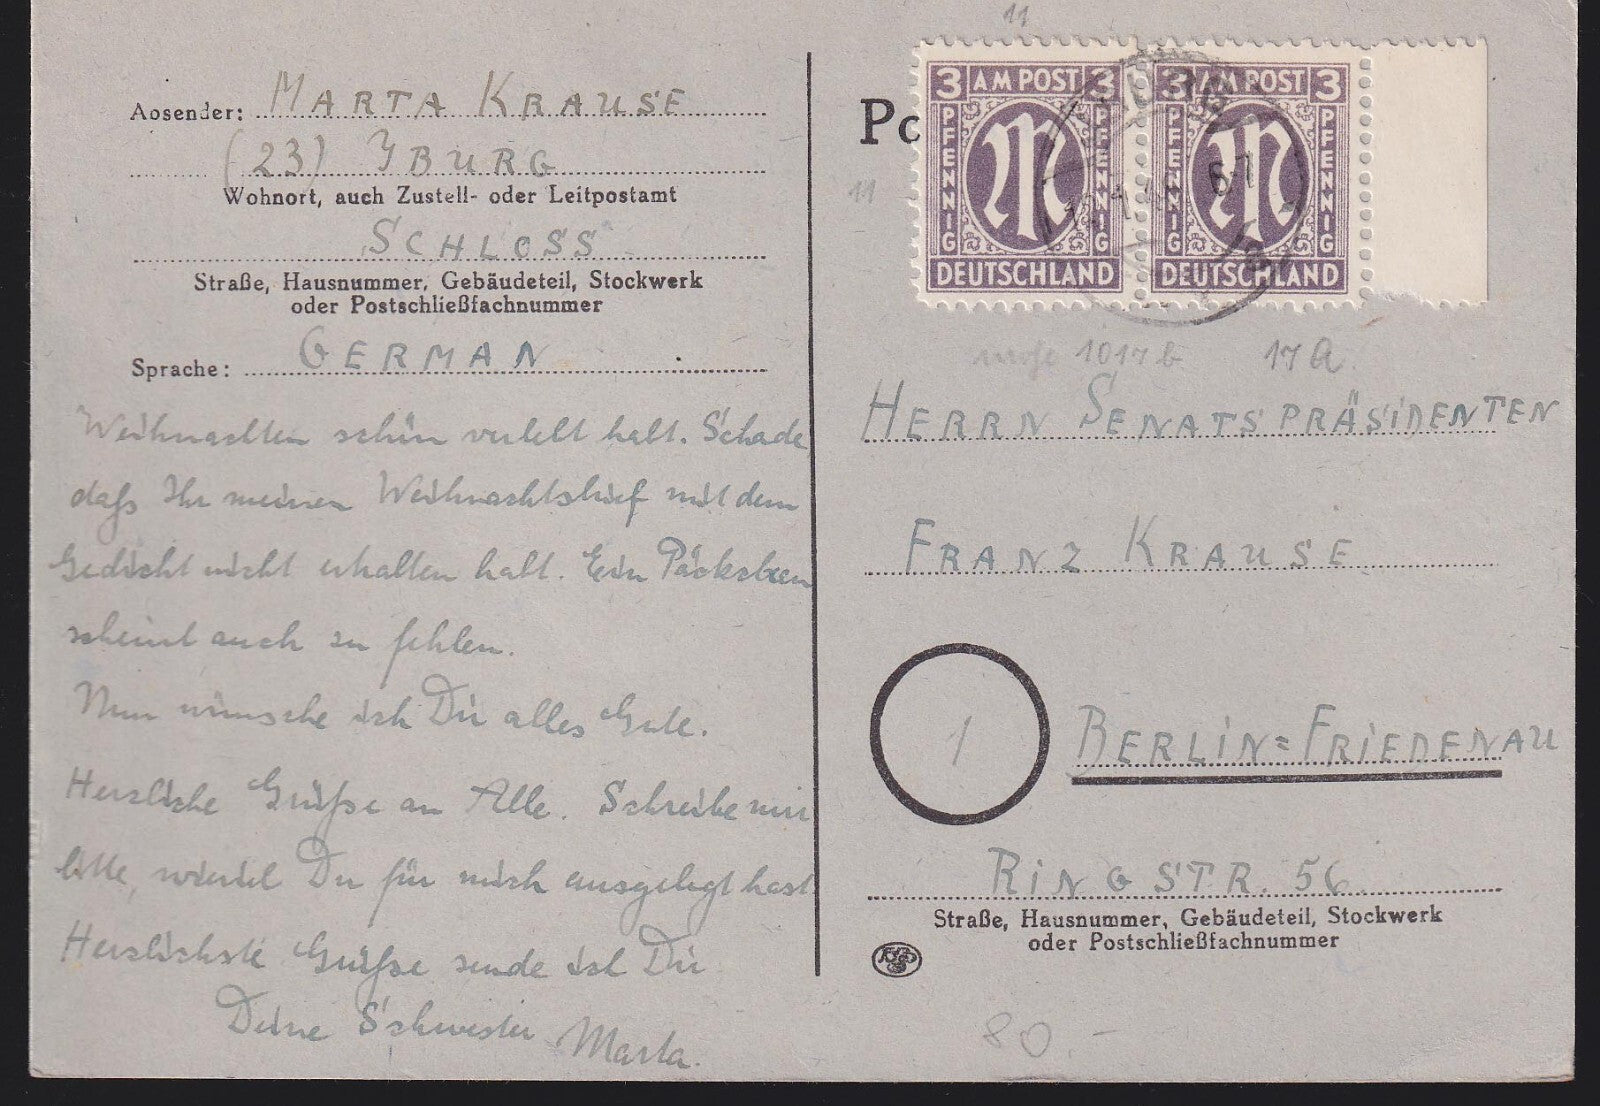 Absender: MARTA KRAUSE
(23) YBURG
Wohnort, auch Zustell- oder Leitpostamt
SCHLOSS
Straße, Hausnummer, Gebäudeteil, Stockwerk
oder Postschließfachnummer
Sprache: GERMAN
Weihnachten schön verlebt habt. Schade
daß Ihr meinen Weihnachtsbrief mit dem
Gedicht nicht erhalten habt. Ein Päckchen
scheint auch zu fehlen.
Nun wünsche ich Dir alles Gute.
Herzliche Grüße an Alle. Schreibe mir
bitte, wieviel Du für mich ausgelegt hast
Herzlichste Grüße sende ich Dir
Deine Schwester Marta.
11
Po
3 AM POST 3
PFENNIG PFENNIG
DEUTSCHLAND
3 AM POST 3
PFENNIG PFENNIG
DEUTSCHLAND
6-7
11
1017 b 17 A
HERRN SENATSPRÄSIDENTEN
FRANZ KRAUSE
1
BERLIN=FRIEDENAU
RINGSTR. 56.
Straße, Hausnummer, Gebäudeteil, Stockwerk
oder Postschließfachnummer
80.-